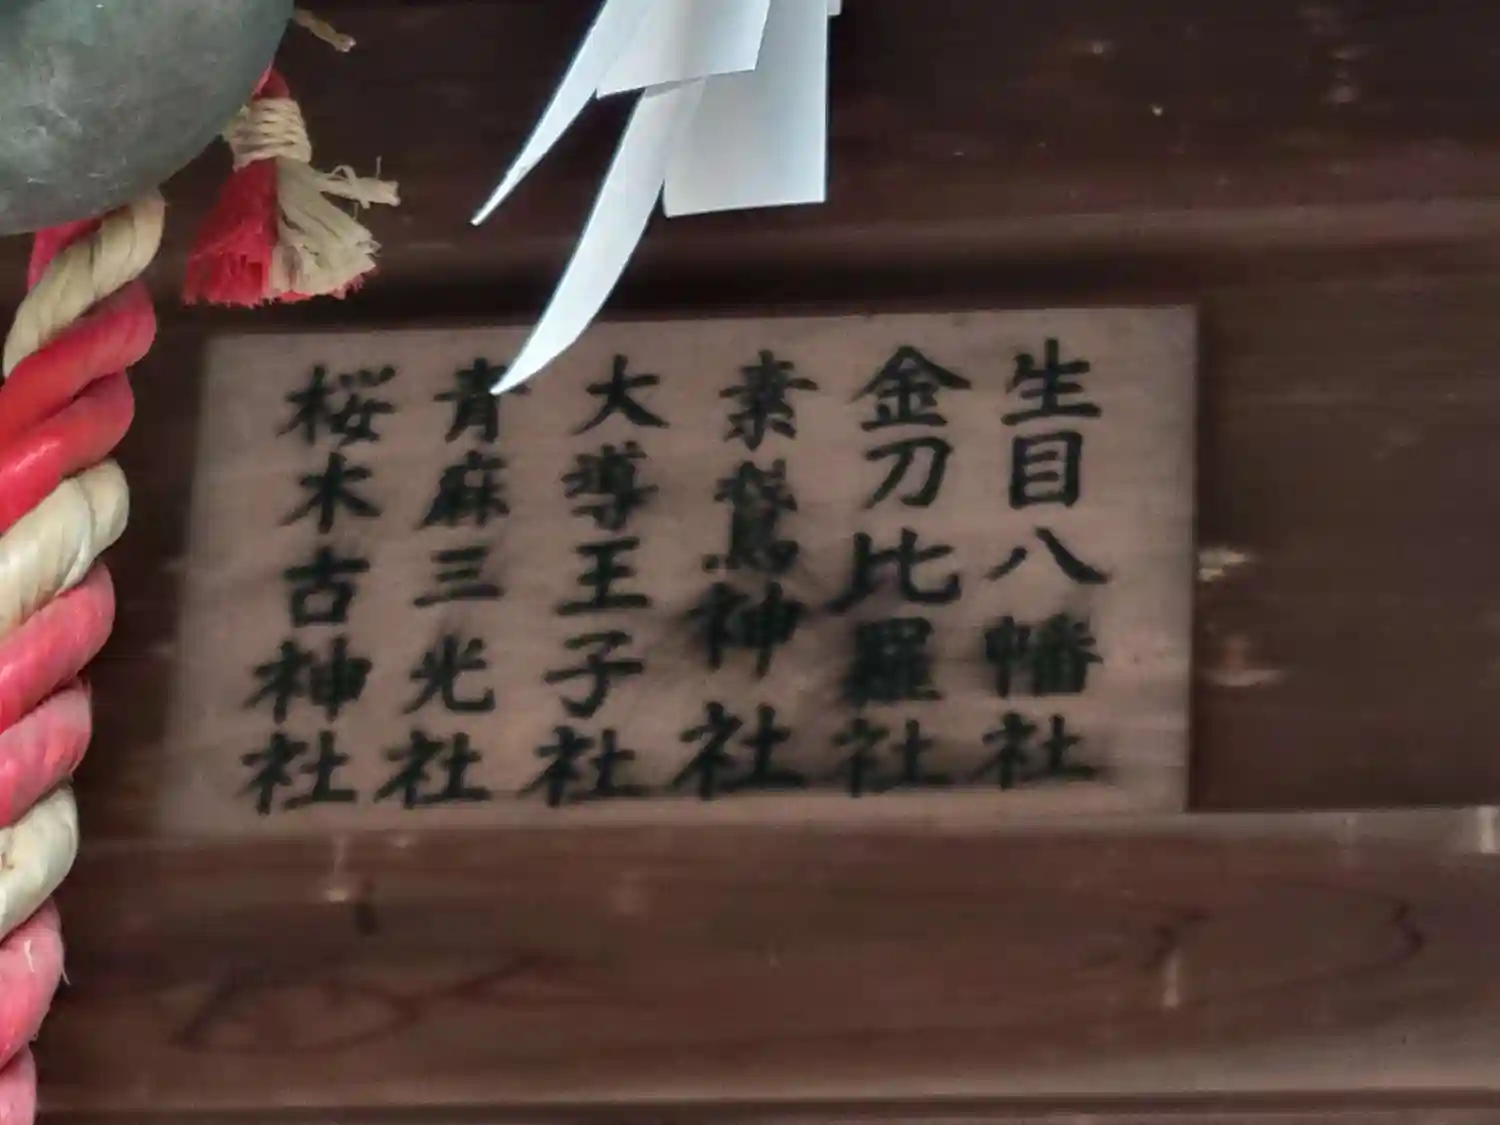 生目八幡社
金刀比羅社
素鵞神社
大導王子社
青麻三光社
桜木古神社